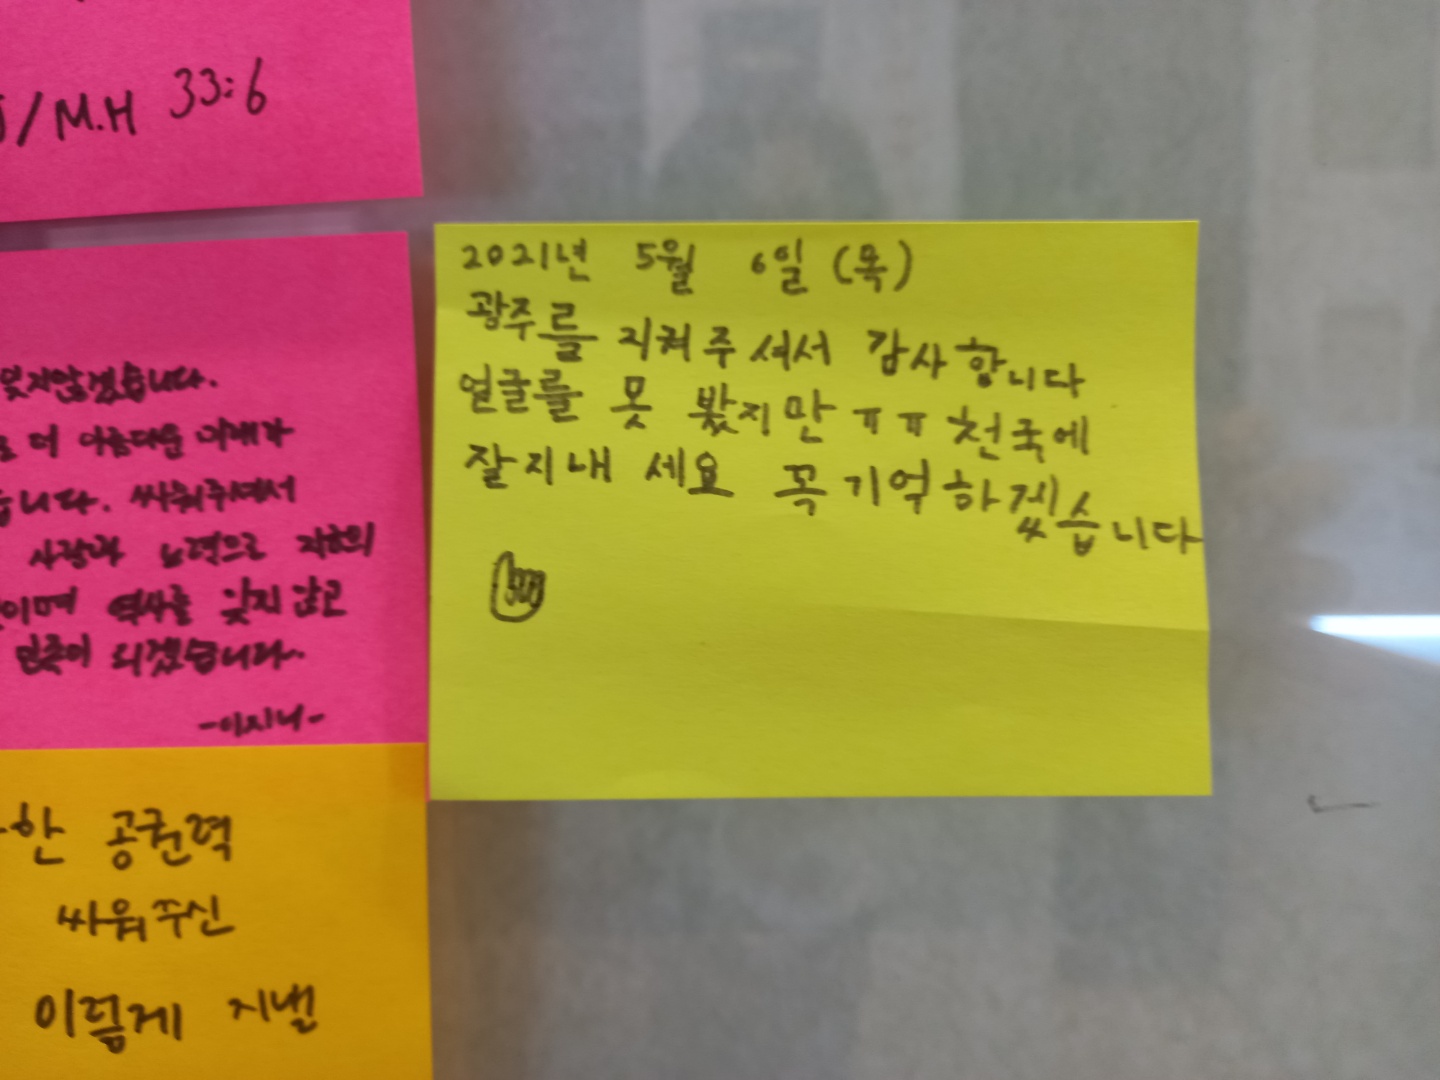 /M.H 33:6
2021년 5월 6일 (목)
광주를 지켜주셔서 감사합니다
얼굴를 못 봤지만 ㅠㅠ 천국에
잘지내 세요 꼭 기억하겠습니다
잊지않겠습니다.
더 아름다운 미래가
습니다. 싸워주셔서
사랑과 노력으로 저희의
역사를 잊지 않고
민족이 되겠습니다.
한 공권력
싸워주신
이렇게 지낼